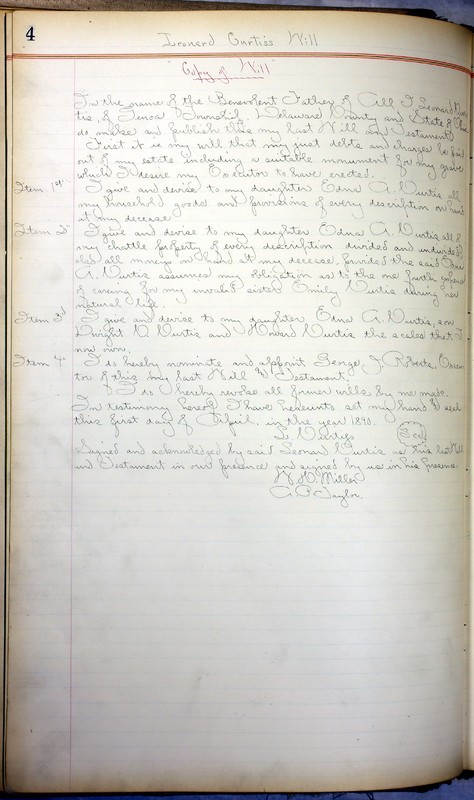 4
Leonard Curtiss Will
"Copy of Will"
In the name of the Benevolent Father of All I Leonard Cur-
tis, of Genoa Township, Delaware County and State of Ohio
do make and publish this my last Will and Testament.
First it is my will that my just debts and charges be paid
out of my estate including a suitable monument for my grave
which I desire my Executor to have erected.
Item 1st I give and devise to my daughter Edna A. Curtis all
my household goods and provisions of every description on hand
at my decease.
Item 2d I give and devise to my daughter Edna A. Curtis all of
my chattle property of every description divided and undivided
also all money on hand at my decease, provided the said Edna
A. Curtis assumes my obligation as to the one fourth expense
of caring for my invalid sister Emily Curtis during her
natural life.
Item 3d I give and devise to my daughter Edna A. Curtis, son
Dwight Curtis and Howard Curtis the scales that I
now own.
Item 4 I do hereby nominate and appoint George J. Roberts, Execu-
tor of this my last Will & Testament.
I do hereby revoke all former wills by me made.
In testimony hereof I have hereunto set my hand & seal
this first day of April, in the year 1890.
L. Curtiss Seal
Signed and acknowledged by said Leonard Curtis as his last Will
and Testament in our presence and signed by us in his presence.
Miller
Taylor.